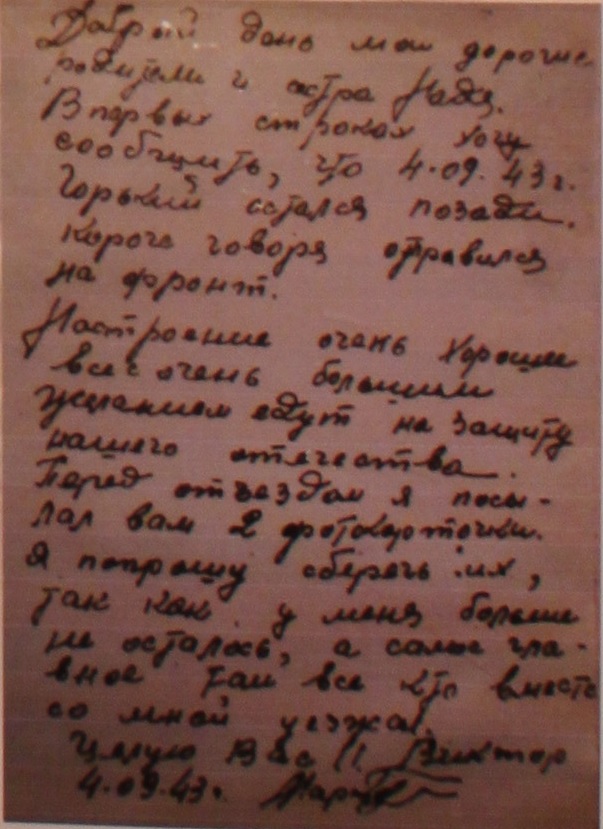 Добрый день мои дорогие
родители и сестра Надя.
В первых строках хочу
сообщить, что 4.09.43 г.
Горький остался позади.
Короче говоря отправился
на фронт.
Настроение очень хорошее
все с очень большим
желанием едут на защиту
нашего отечества.
Перед отъездом я посы-
лал вам 2 фотокарточки.
Я попрошу сберечь их,
так как у меня больше
не осталось, а самое гла-
вное там все кто вместе
со мной уезжал.
Целую Вас !! Виктор
4.09.43 г.